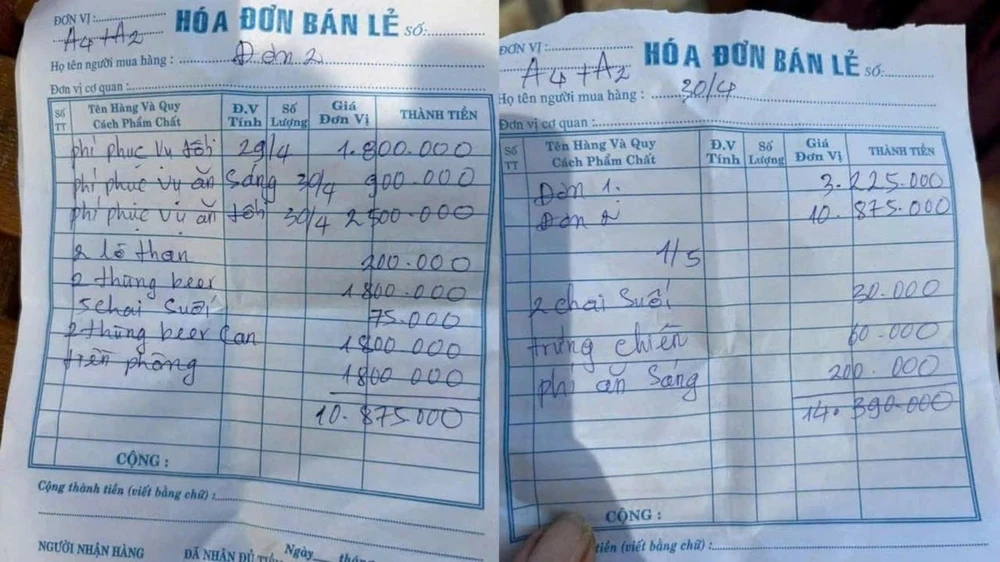 ĐƠN VỊ :
HÓA ĐƠN BÁN LẺ SỐ:
A4+A2
Họ tên người mua hàng : Đơn 2
Đơn vị cơ quan :
Số TT Tên Hàng Và Quy Cách Phẩm Chất Đ.V Tính Số Lượng Giá Đơn Vị THÀNH TIỀN
phí phục vụ tối 29/4 1.800.000
phí phục vụ ăn sáng 30/4 900.000
phí phục vụ ăn tối 30/4 2500.000
2 lò than 200.000
2 thùng beer 1800.000
5 chai suối 75.000
2 thùng beer Can 1800.000
tiền phòng 1800 000
10.875.000
CỘNG :
Cộng thành tiền (viết bằng chữ) :
NGƯỜI NHẬN HÀNG ĐÃ NHẬN ĐỦ Ngày
ĐƠN VỊ :
HÓA ĐƠN BÁN LẺ SỐ:
A4+A2
Họ tên người mua hàng : 30/4
Đơn vị cơ quan :
Số TT Tên Hàng Và Quy Cách Phẩm Chất Đ.V Tính Số Lượng Giá Đơn Vị THÀNH TIỀN
Đơn 1. 3.225.000
Đơn 2 10.875.000
1/5
2 chai suối 30.000
trứng chiên 60.000
phí ăn sáng 200.000
14.390.000
CỘNG :
tiền (viết bằng chữ) :